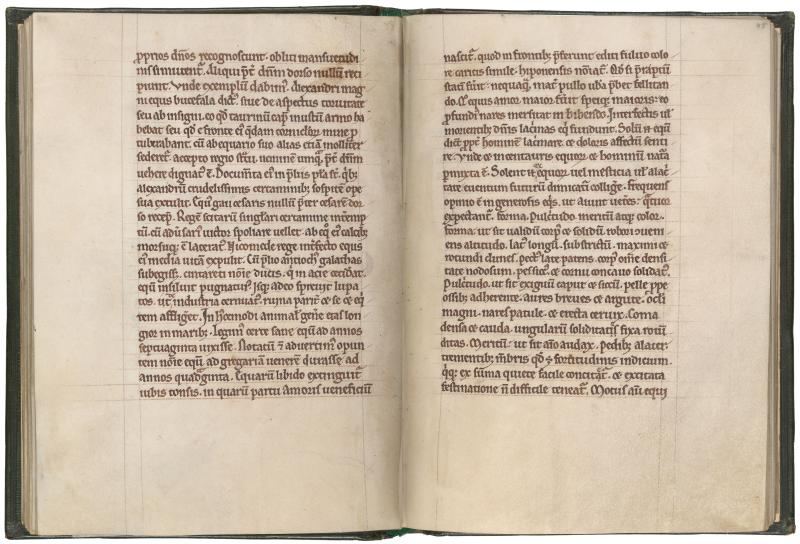 p̱prios dn̄os recognoscunt · obliti mansuetudi
nis si mutent᷑ . Aliqui p̄t̄ dn̄m dorso nullū reci
piunt . Vnde exemplū dabim᷒ . Alexandri mag
ni equs bucefala dict᷒ siue de aspectus toruitate
seu ab insigni · eo qd̄ taurinū cap̄ inustū armo ha
bebat seu qd̄ e fronte ei᷒ q̇dam corniclor᷒ mine p̱
tuberabant . cū ab equario suo alias etiā molliter
sederet᷑ · accepto regio st̄tu · neminē umq̄ p̄t̄ dn̄m
uehere dignat᷒ ē . Documt̄a ei᷒ in p̄liis pl̄a st̄ · q̇b;
alexandrū crudelissimis certaminib; sospitē ope
sua extulit . Equ᷒ gaii cesaris nullū p̄ter cesarē dor
so recep̄ . Regē scitarū singlari certamine int̾emp
tū · cū adūsari᷒ uictor spoliare uellet · ab eq̊ ei᷒ calcib;
morsuq; ē lac̄at᷒ . Nicomede rege int̾fecto equs
ei᷒ inedia uitā expulit . Cū p̄lio antioch᷒ galathas
subegiss; · cintareti noīe ducis · q̇ in acie ceciderat
equū insiluit pugnatur᷒ . Isq; adeo spreuit lupa
tos · ut de industria cernuat᷒ · ruina parit̾ ⁊ se ⁊ eq̇
tem affliget . In hocmodi animal᷒ gn̄e etas lon
gior in marib; . Legim᷒ certe sane equū ad annos
septuaginta uixisse . Notatū ⁊ aduertim᷒ opun
tem noīe equū ad gregariā uenerē durasse ad
annos quadraginta . Equarū libido extinguit᷑
iubis tonsis . in quarū partu amoris ueneficiū
nascit᷑ · quod in frontib; p̄ferunt editi fuluo colo
re caricis simile · hiponensis noīat᷑ . Qd̄ si p̄raptū
stati fu̾it · nequaq̄ mat᷑ pullo ub̾a p̄bet fellitan
do . Cui equis amor maior fu̾it speiq; maioris · eo
p̱fundi᷒ nares mersitat in bibendo . Interfectis ul̄
morientib; dn̄is lac̾mas eq̇ fundunt . Solū n̄ equū
dic̄t p̱pt̾ hominē lac̾mare · ⁊ doloris affectū senti
re . Vnde ⁊ in centauris equor᷒ ⁊ hominū nat̾a
p̱mixta ē . Solent ⁊ ex equor᷒ uel mesticia ul̄ alac̾i
tate euentum futurū dimicaturi collig̾e . Frequens
opinio ē in generosis eq̇s · ut aiunt uet̾es · quatuor
expectant᷑ . forma . Pulcritudo . meritū atq; color .
Forma · ut sit ualidū corp᷒ ⁊ solidū · robori ↄueni
ens altitudo . Lat᷒ longū · substrictū . maximi ⁊
rotundi clunes . pect᷒ late patens . corp᷒ om̄e densi
tate nodosum . pes sicc᷒ · ⁊ cornu concauo solidat᷒ .
Pulcritudo . ut sit exiguū caput ⁊ siccū . pelle p̱pe
ossib; adherente . aures breues ⁊ argute . ocl̄i
magni . nares patule · ⁊ erecta ceruix . Coma
densa ⁊ cauda . ungularū soliditatis fixa rotū
ditas . Meritū . ut sit aīo audax . pedib; alac̾ .
trementib; mēbris qd̄ ⁊ fortitudinis indicium
q̇q; ex sūma quiete facile concitat᷑ · ⁊ excitata
festinatione n̄ difficile teneat᷑ . Motus aū equi